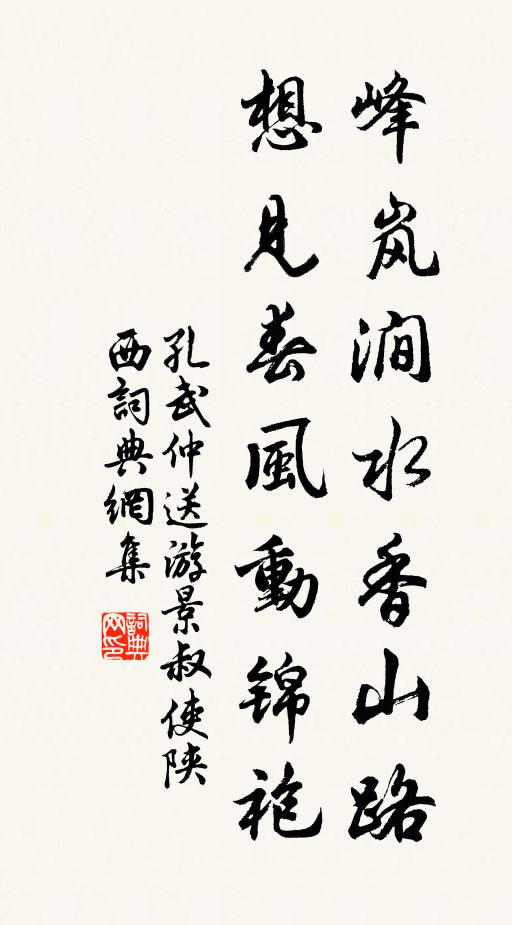 峰岚涧水香山路
想見春風動锦袍
孔武仲送游景叔使陕
西詞典網集
詞典网印